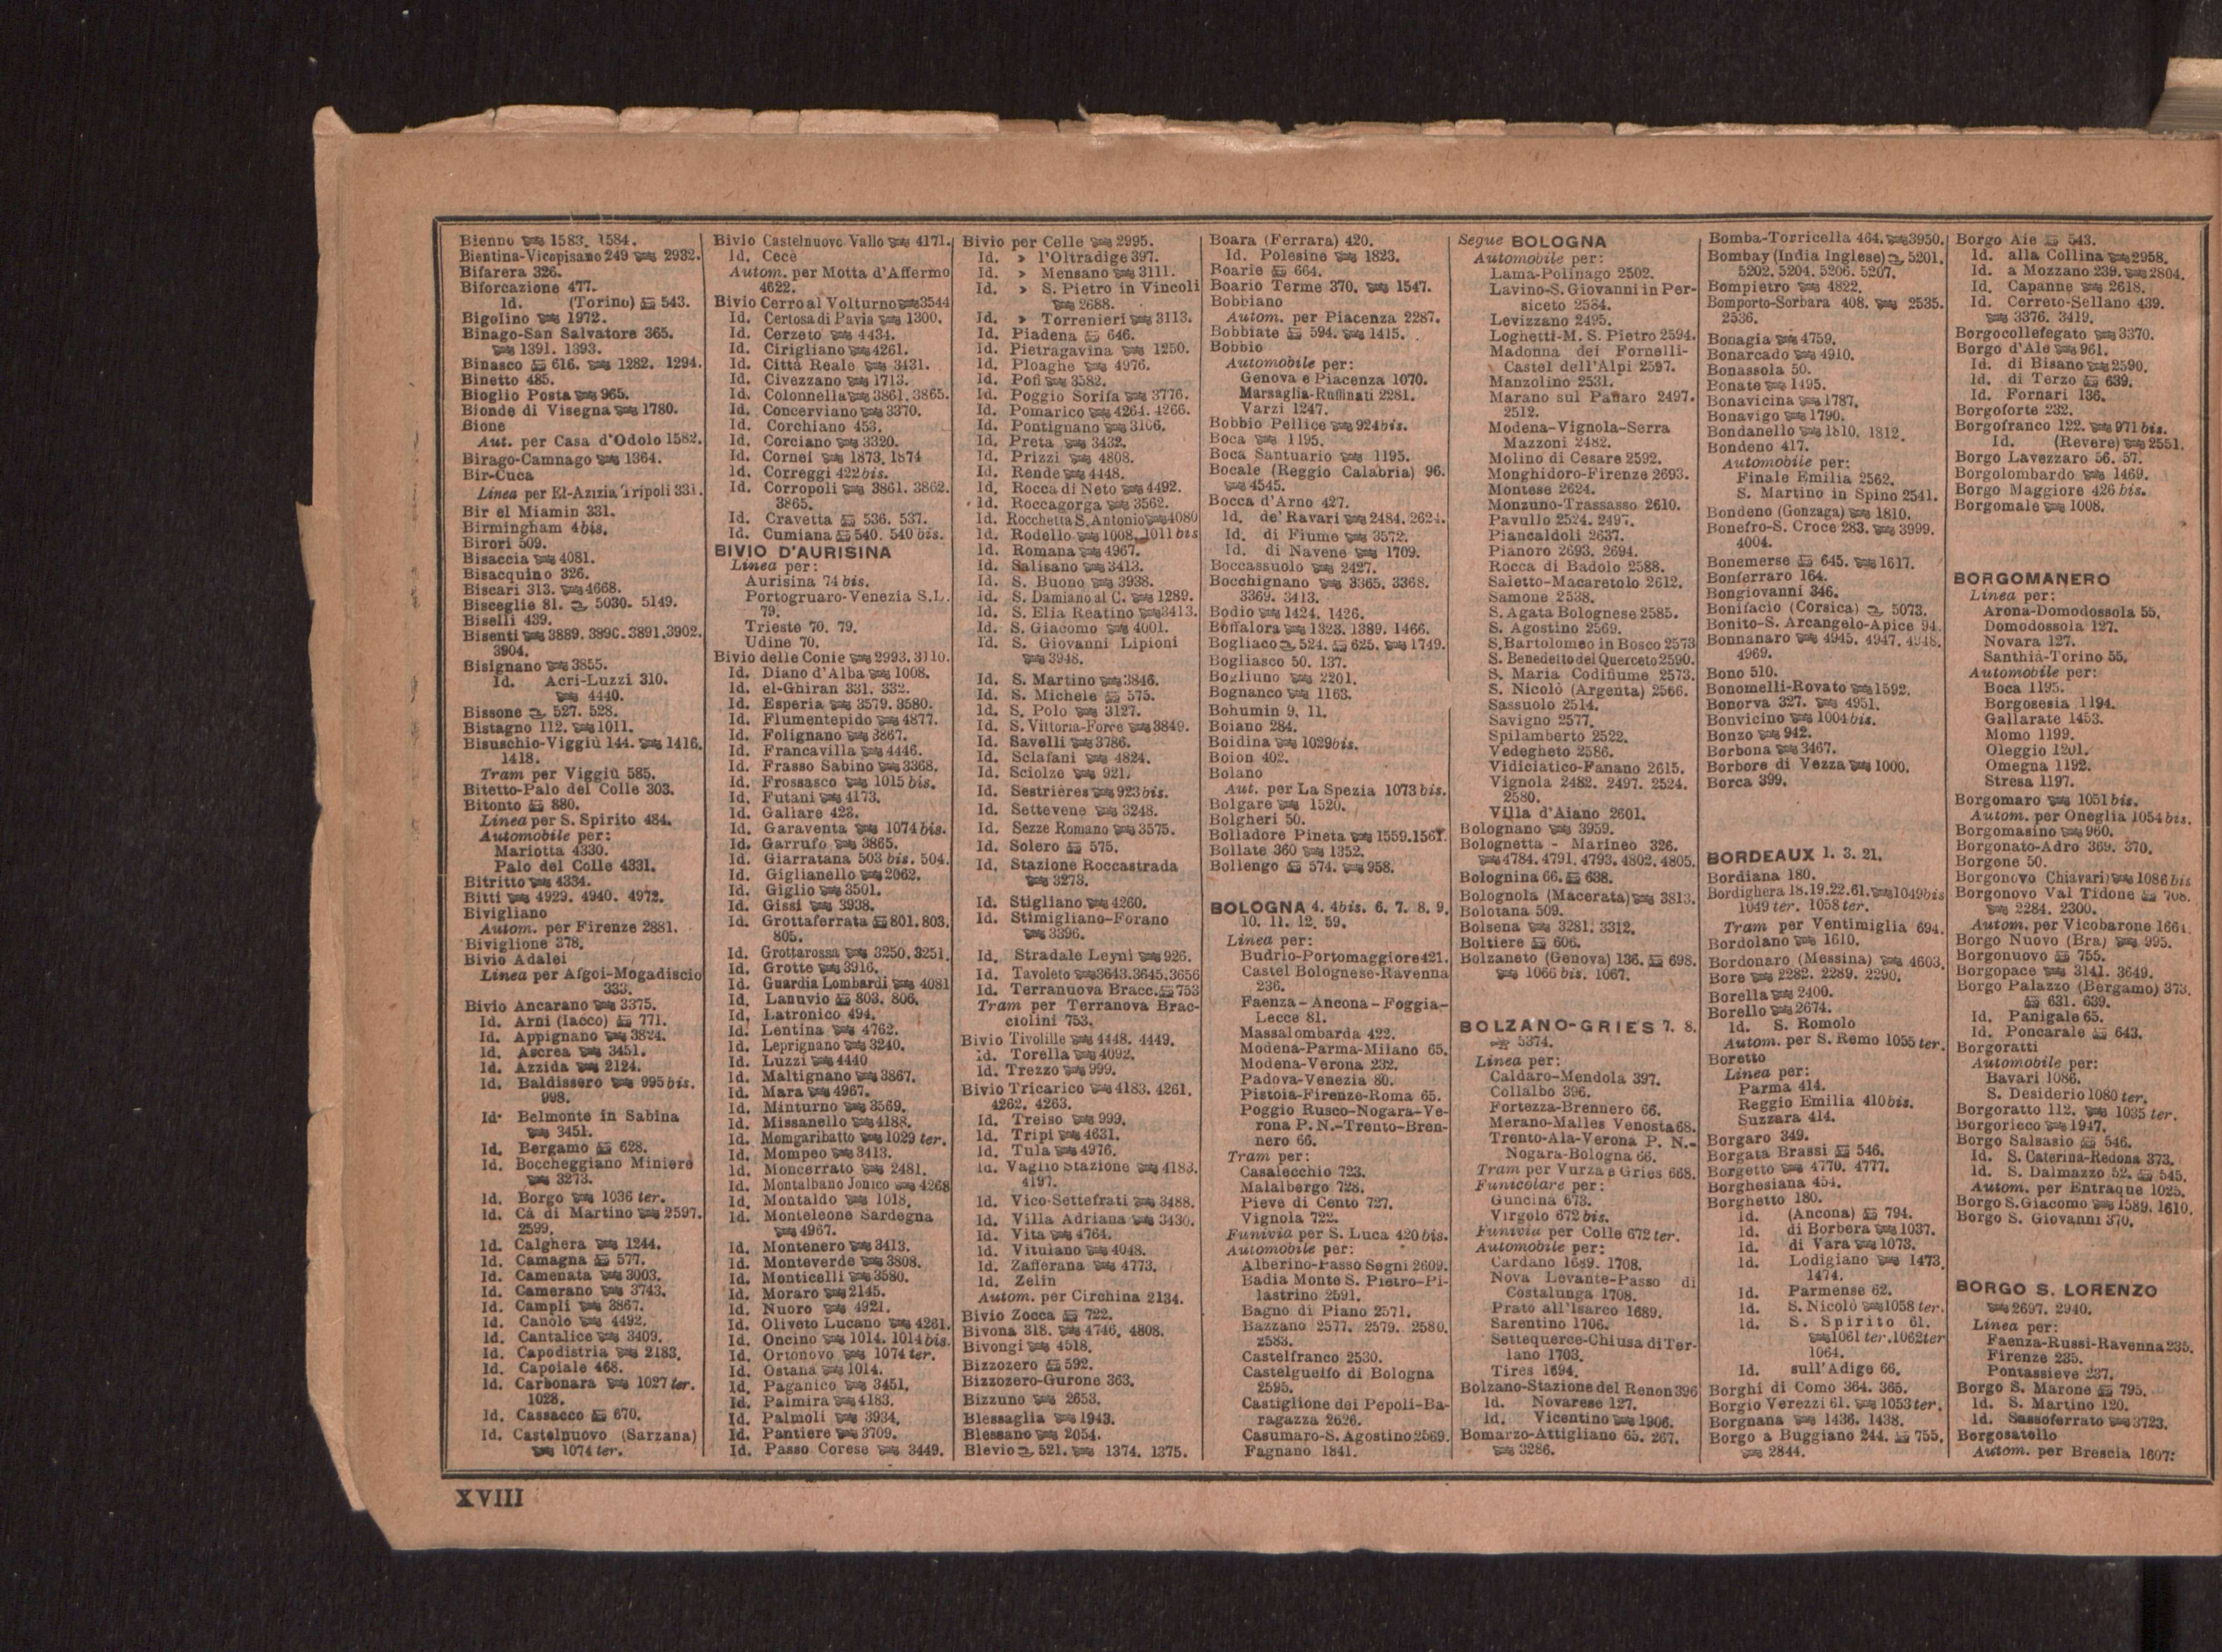 Bienno 1583. 1584.
Bientina-Vicopisano 249 2932.
Bifarera 326.
Biforcazione 477.
Id. (Torino) 543.
Bigolino 1972.
Binago-San Salvatore 365.
1391. 1393.
Binasco 616. 1282. 1294.
Binetto 485.
Bioglio Posta 965.
Bionde di Visegna 1780.
Bione
Aut. per Casa d'Odolo 1582.
Birago-Camnago 1364.
Bir-Cuca
Linea per El-Azizia Tripoli 331.
Bir el Miamin 331.
Birmingham 4bis.
Birori 509.
Bisaccia 4081.
Bisacquino 326.
Biscari 313. 4668.
Bisceglie 81. 5030. 5149.
Biselli 439.
Bisenti 3889. 3890. 3891. 3902.
3904.
Bisignano 3855.
Id. Acri-Luzzi 310.
4440.
Bissone 527. 528.
Bistagno 112. 1011.
Bisuschio-Viggiù 144. 1416.
1418.
Tram per Viggiù 585.
Bitetto-Palo del Colle 303.
Bitonto 880.
Linea per S. Spirito 484.
Automobile per:
Mariotta 4330.
Palo del Colle 4331.
Bitritto 4334.
Bitti 4929. 4940. 4972.
Bivigliano
Autom. per Firenze 2881.
Biviglione 378.
Bivio Adalei
Linea per Afgoi-Mogadiscio
333.
Bivio Ancarano 3375.
Id. Arni (Iacco) 771.
Id. Appignano 3824.
Id. Ascrea 3451.
Id. Azzida 2124.
Id. Baldissero 995bis.
998.
Id. Belmonte in Sabina
3451.
Id. Bergamo 628.
Id. Boccheggiano Miniere
3273.
Id. Borgo 1036 ter.
Id. Cà di Martino 2597.
2599.
Id. Calghera 1244.
Id. Camagna 577.
Id. Camenata 3003.
Id. Camerano 3743.
Id. Campli 3867.
Id. Canolo 4492.
Id. Cantalice 3409.
Id. Capodistria 2183.
Id. Capoiale 468.
Id. Carbonara 1027 ter.
1028.
Id. Cassacco 670.
Id. Castelnuovo (Sarzana)
1074 ter.
Bivio Castelnuovo Vallo 4171.
Id. Cecè
Autom. per Motta d'Affermo
4622.
Bivio Cerro al Volturno 3544
Id. Certosa di Pavia 1300.
Id. Cerzeto 4434.
Id. Cirigliano 4261.
Id. Città Reale 3431.
Id. Civezzano 1713.
Id. Colonnella 3861. 3865.
Id. Concerviano 3370.
Id. Corchiano 453.
Id. Corciano 3320.
Id. Cornei 1873. 1874
Id. Correggi 422bis.
Id. Corropoli 3861. 3862.
3865.
Id. Cravetta 536. 537.
Id. Cumiana 540. 540 bis.
BIVIO D'AURISINA
Linea per:
Aurisina 74 bis.
Portogruaro-Venezia S.L.
79.
Trieste 70. 79.
Udine 70.
Bivio delle Conie 2993. 3110.
Id. Diano d'Alba 1008.
Id. el-Ghiran 331. 332.
Id. Esperia 3579. 3580.
Id. Flumentepido 4877.
Id. Folignano 3867.
Id. Francavilla 4446.
Id. Frasso Sabino 3368.
Id. Frossasco 1015 bis.
Id. Futani 4173.
Id. Gallare 423.
Id. Garaventa 1074 bis.
Id. Garrufo 3865.
Id. Giarratana 503 bis. 504.
Id. Giglianello 2062.
Id. Giglio 3501.
Id. Gissi 3938.
Id. Grottaferrata 801. 803.
805.
Id. Grottarossa 3250. 3251.
Id. Grotte 3916.
Id. Guardia Lombardi 4081
Id. Lanuvio 803. 806.
Id. Latronico 494.
Id. Lentina 4762.
Id. Leprignano 3240.
Id. Luzzi 4440
Id. Maltignano 3867.
Id. Mara 4967.
Id. Minturno 3569.
Id. Missanello 4188.
Id. Momgaribatto 1029 ter.
Id. Mompeo 3413.
Id. Moncerrato 2481.
Id. Montalbano Jonico 4268
Id. Montaldo 1018.
Id. Monteleone Sardegna
4967.
Id. Montenero 3413.
Id. Monteverde 3808.
Id. Monticelli 3580.
Id. Moraro 2145.
Id. Nuoro 4921.
Id. Oliveto Lucano 4261.
Id. Oncino 1014. 1014 bis.
Id. Ortonovo 1074 ter.
Id. Ostana 1014.
Id. Paganico 3451.
Id. Palmira 4183.
Id. Palmoli 3934.
Id. Pantiere 3709.
Id. Passo Corese 3449.
Bivio per Celle 2995.
Id. » l'Oltradige 397.
Id. » Mensano 3111.
Id. » S. Pietro in Vincoli
2688.
Id. » Torrenieri 3113.
Id. Piadena 646.
Id. Pietragavina 1250.
Id. Ploaghe 4976.
Id. Pofi 3582.
Id. Poggio Sorifa 3776.
Id. Pomarico 4264. 4266.
Id. Pontignano 3106.
Id. Preta 3432.
Id. Prizzi 4808.
Id. Rende 4448.
Id. Rocca di Neto 4492.
Id. Roccagorga 3562.
Id. Rocchetta S. Antonio 4080
Id. Rodello 1008. 1011 bis
Id. Romana 4967.
Id. Salisano 3413.
Id. S. Buono 3938.
Id. S. Damiano al C. 1289.
Id. S. Elia Reatino 3413.
Id. S. Giacomo 4001.
Id. S. Giovanni Lipioni
3948.
Id. S. Martino 3846.
Id. S. Michele 575.
Id. S. Polo 3127.
Id. S. Vittoria-Force 3849.
Id. Savelli 3786.
Id. Sclafani 4824.
Id. Sciolze 921.
Id. Sestrières 923 bis.
Id. Settevene 3248.
Id. Sezze Romano 3575.
Id. Solero 575.
Id. Stazione Roccastrada
3273.
Id. Stigliano 4260.
Id. Stimigliano-Forano
3396.
Id. Stradale Leynì 926.
Id. Tavoleto 3643. 3645. 3656
Id. Terranuova Bracc. 753
Tram per Terranova Brac-
ciolini 753.
Bivio Tivolille 4448. 4449.
Id. Torella 4092.
Id. Trezzo 999.
Bivio Tricarico 4183. 4261.
4262. 4263.
Id. Treiso 999.
Id. Tripi 4631.
Id. Tula 4976.
Id. Vaglio Stazione 4183.
4197.
Id. Vico-Settefrati 3488.
Id. Villa Adriana 3430.
Id. Vita 4764.
Id. Vitulano 4048.
Id. Zafferana 4773.
Id. Zelin
Autom. per Circhina 2134.
Bivio Zocca 722.
Bivona 318. 4746. 4808.
Bivongi 4518.
Bizzozero 592.
Bizzozero-Gurone 363.
Bizzuno 2653.
Blessaglia 1943.
Blessano 2054.
Blevio 521. 1374. 1375.
Boara (Ferrara) 420.
Id. Polesine 1823.
Boarie 664.
Boario Terme 370. 1547.
Bobbiano
Autom. per Piacenza 2287.
Bobbiate 594. 1415.
Bobbio
Automobile per:
Genova e Piacenza 1070.
Marsaglia-Ruffinati 2281.
Varzi 1247.
Bobbio Pellice 924bis.
Boca 1195.
Boca Santuario 1195.
Bocale (Reggio Calabria) 96.
4545.
Bocca d'Arno 427.
Id. de' Ravari 2484. 2624.
Id. di Fiume 3572.
Id. di Navene 1709.
Boccassuolo 2427.
Bocchignano 3365. 3368.
3369. 3413.
Bodio 1424. 1426.
Boffalora 1323. 1389. 1466.
Bogliaco 524. 625. 1749.
Bogliasco 50. 137.
Bogliuno 2201.
Bognanco 1163.
Bohumin 9. 11.
Boiano 284.
Boidina 1029bis.
Boion 402.
Bolano
Aut. per La Spezia 1073 bis.
Bolgare 1520.
Bolgheri 50.
Bolladore Pineta 1559. 1561.
Bollate 360 1352.
Bollengo 574. 958.
BOLOGNA 4. 4bis. 6. 7. 8. 9.
10. 11. 12. 59.
Linea per:
Budrio-Portomaggiore 421.
Castel Bolognese-Ravenna
236.
Faenza-Ancona-Foggia-
Lecce 81.
Massalombarda 422.
Modena-Parma-Milano 65.
Modena-Verona 232.
Padova-Venezia 80.
Pistoia-Firenze-Roma 65.
Poggio Rusco-Nogara-Ve-
rona P. N.-Trento-Bren-
nero 66.
Tram per:
Casalecchio 723.
Malalbergo 728.
Pieve di Cento 727.
Vignola 722.
Funivia per S. Luca 420 bis.
Automobile per:
Alberino-Passo Segni 2609.
Badia Monte S. Pietro-Pi-
lastrino 2591.
Bagno di Piano 2571.
Bazzano 2577. 2579. 2580.
2583.
Castelfranco 2530.
Castelguelfo di Bologna
2595.
Castiglione dei Pepoli-Ba-
ragazza 2626.
Casumaro-S. Agostino 2569.
Fagnano 1841.
Segue BOLOGNA
Automobile per:
Lama-Polinago 2502.
Lavino-S. Giovanni in Per-
siceto 2584.
Levizzano 2495.
Loghetti-M. S. Pietro 2594.
Madonna dei Fornelli-
Castel dell'Alpi 2597.
Manzolino 2531.
Marano sul Panaro 2497.
2512.
Modena-Vignola-Serra
Mazzoni 2482.
Molino di Cesare 2592.
Monghidoro-Firenze 2693.
Montese 2624.
Monzuno-Trassasso 2610.
Pavullo 2524. 2497.
Piancaldoli 2637.
Pianoro 2693. 2694.
Rocca di Badolo 2588.
Saletto-Macaretolo 2612.
Samone 2538.
S. Agata Bolognese 2585.
S. Agostino 2569.
S. Bartolomeo in Bosco 2573
S. Benedetto del Querceto 2590.
S. Maria Codifiume 2573.
S. Nicolò (Argenta) 2566.
Sassuolo 2514.
Savigno 2577.
Spilamberto 2522.
Vedegheto 2586.
Vidiciatico-Fanano 2615.
Vignola 2482. 2497. 2524.
2580.
Villa d'Aiano 2601.
Bolognano 3959.
Bolognetta - Marineo 326.
4784. 4791. 4793. 4802. 4805.
Bolognina 66. 638.
Bolognola (Macerata) 3813.
Bolotana 509.
Bolsena 3281. 3312.
Boltiere 606.
Bolzaneto (Genova) 136. 698.
1066 bis. 1067.
BOLZANO-GRIES 7. 8.
5374.
Linea per:
Caldaro-Mendola 397.
Collalbo 396.
Fortezza-Brennero 66.
Merano-Malles Venosta 68.
Trento-Ala-Verona P. N.-
Nogara-Bologna 66.
Tram per Vurza e Gries 668.
Funicolare per:
Guncinà 673.
Virgolo 672 bis.
Funivia per Colle 672 ter.
Automobile per:
Cardano 1689. 1708.
Nova Levante-Passo di
Costalunga 1708.
Prato all'Isarco 1689.
Sarentino 1706.
Settequerce-Chiusa di Ter-
lano 1703.
Tires 1694.
Bolzano-Stazione del Renon 396
Id. Novarese 127.
Id. Vicentino 1906.
Bomarzo-Attigliano 65. 267.
3286.
Bomba-Torricella 464. 3950.
Bombay (India Inglese) 5201.
5202. 5204. 5206. 5207.
Bompietro 4822.
Bomporto-Sorbara 408. 2535.
2536.
Bonagia 4759.
Bonarcado 4910.
Bonassola 50.
Bonate 1495.
Bonavicina 1787.
Bonavigo 1790.
Bondanello 1810. 1812.
Bondeno 417.
Automobile per:
Finale Emilia 2562.
S. Martino in Spino 2541.
Bondeno (Gonzaga) 1810.
Bonefro-S. Croce 283. 3999.
4004.
Bonemerse 645. 1617.
Bonferraro 164.
Bongiovanni 346.
Bonifacio (Corsica) 5073.
Bonito-S. Arcangelo-Apice 94.
Bonnanaro 4945. 4947. 4948.
4969.
Bono 510.
Bonomelli-Rovato 1592.
Bonorva 327. 4951.
Bonvicino 1004 bis.
Bonzo 942.
Borbona 3467.
Borbore di Vezza 1000.
Borca 399.
BORDEAUX 1. 3. 21.
Bordiana 180.
Bordighera 18. 19. 22. 61. 1049bis
1049 ter. 1058 ter.
Tram per Ventimiglia 694.
Bordolano 1610.
Bordonaro (Messina) 4603.
Bore 2282. 2289. 2290.
Borella 2400.
Borello 2674.
Id. S. Romolo
Autom. per S. Remo 1055 ter.
Boretto
Linea per:
Parma 414.
Reggio Emilia 410bis.
Suzzara 414.
Borgaro 349.
Borgata Brassi 546.
Borgetto 4770. 4777.
Borghesiana 454.
Borghetto 180.
Id. (Ancona) 794.
Id. di Borbera 1037.
Id. di Vara 1073.
Id. Lodigiano 1473
1474.
Id. Parmense 62.
Id. S. Nicolò 1058 ter.
Id. S. Spirito 61.
1061 ter. 1062ter
1064.
Id. sull'Adige 66.
Borghi di Como 364. 365.
Borgio Verezzi 61. 1053 ter.
Borgnana 1436. 1438.
Borgo a Buggiano 244. 755.
2844.
Borgo Aie 543.
Id. alla Collina 2958.
Id. a Mozzano 239. 2804.
Id. Capanne 2618.
Id. Cerreto-Sellano 439.
3376. 3419.
Borgocollefegato 3370.
Borgo d'Ale 961.
Id. di Bisano 2590.
Id. di Terzo 639.
Id. Fornari 136.
Borgoforte 232.
Borgofranco 122. 971 bis.
Id. (Revere) 2551.
Borgo Lavezzaro 56. 57.
Borgolombardo 1469.
Borgo Maggiore 426 bis.
Borgomale 1008.
BORGOMANERO
Linea per:
Arona-Domodossola 55.
Domodossola 127.
Novara 127.
Santhià-Torino 55.
Automobile per:
Boca 1195.
Borgosesia 1194.
Gallarate 1453.
Momo 1199.
Oleggio 1201.
Omegna 1192.
Stresa 1197.
Borgomaro 1051 bis.
Autom. per Oneglia 1054 bis.
Borgomasino 960.
Borgonato-Adro 369. 370.
Borgone 50.
Borgonovo Chiavari) 1086 bis
Borgonovo Val Tidone 708.
2284. 2300.
Autom. per Vicobarone 1661.
Borgo Nuovo (Bra) 995.
Borgonuovo 755.
Borgopace 3141. 3649.
Borgo Palazzo (Bergamo) 373.
631. 639.
Id. Panigale 65.
Id. Poncarale 643.
Borgoratti
Automobile per:
Bavari 1086.
S. Desiderio 1080 ter.
Borgoratto 112. 1035 ter.
Borgoricco 1947.
Borgo Salsasio 546.
Id. S. Caterina-Redona 373.
Id. S. Dalmazzo 52. 545.
Autom. per Entraque 1025.
Borgo S. Giacomo 1589. 1610.
Borgo S. Giovanni 370.
BORGO S. LORENZO
2697. 2940.
Linea per:
Faenza-Russi-Ravenna 235.
Firenze 235.
Pontassieve 237.
Borgo S. Marone 795.
Id. S. Martino 120.
Id. Sassoferrato 3723.
Borgosatollo
Autom. per Brescia 1607:
XVIII